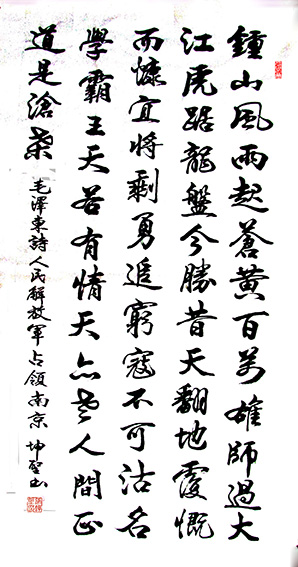 鍾山風雨起蒼黃百万雄師過大
江虎踞龍盤今勝昔天翻地覆慨
而慷宜將剩勇追窮寇不可沽名
學霸王天若有情天亦老人間正
道是滄桑
毛澤東詩人民解放軍占領南京 坤聖书